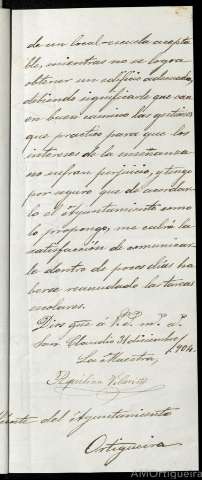 de un local-escuela acepta-
ble, mientras no se logra
obtener un edificio adecuado,
debiendo significarle que van
en buen camino las gestiones
que practico para que los
intereses de la enseñanza
no sufran perjuicio, y tengo
por seguro que de acordar-
lo el Ayuntamiento como
lo propongo, me cabrá la
satisfacción de comunicar-
le dentro de pocos días ha-
berse reanudado las tareas
escolares.
Dios gue á V. S. m. a.
San Claudio 31 diciembre/904.
La Maestra,
del Ayuntamiento
Ortigueira
AMOrtigueira